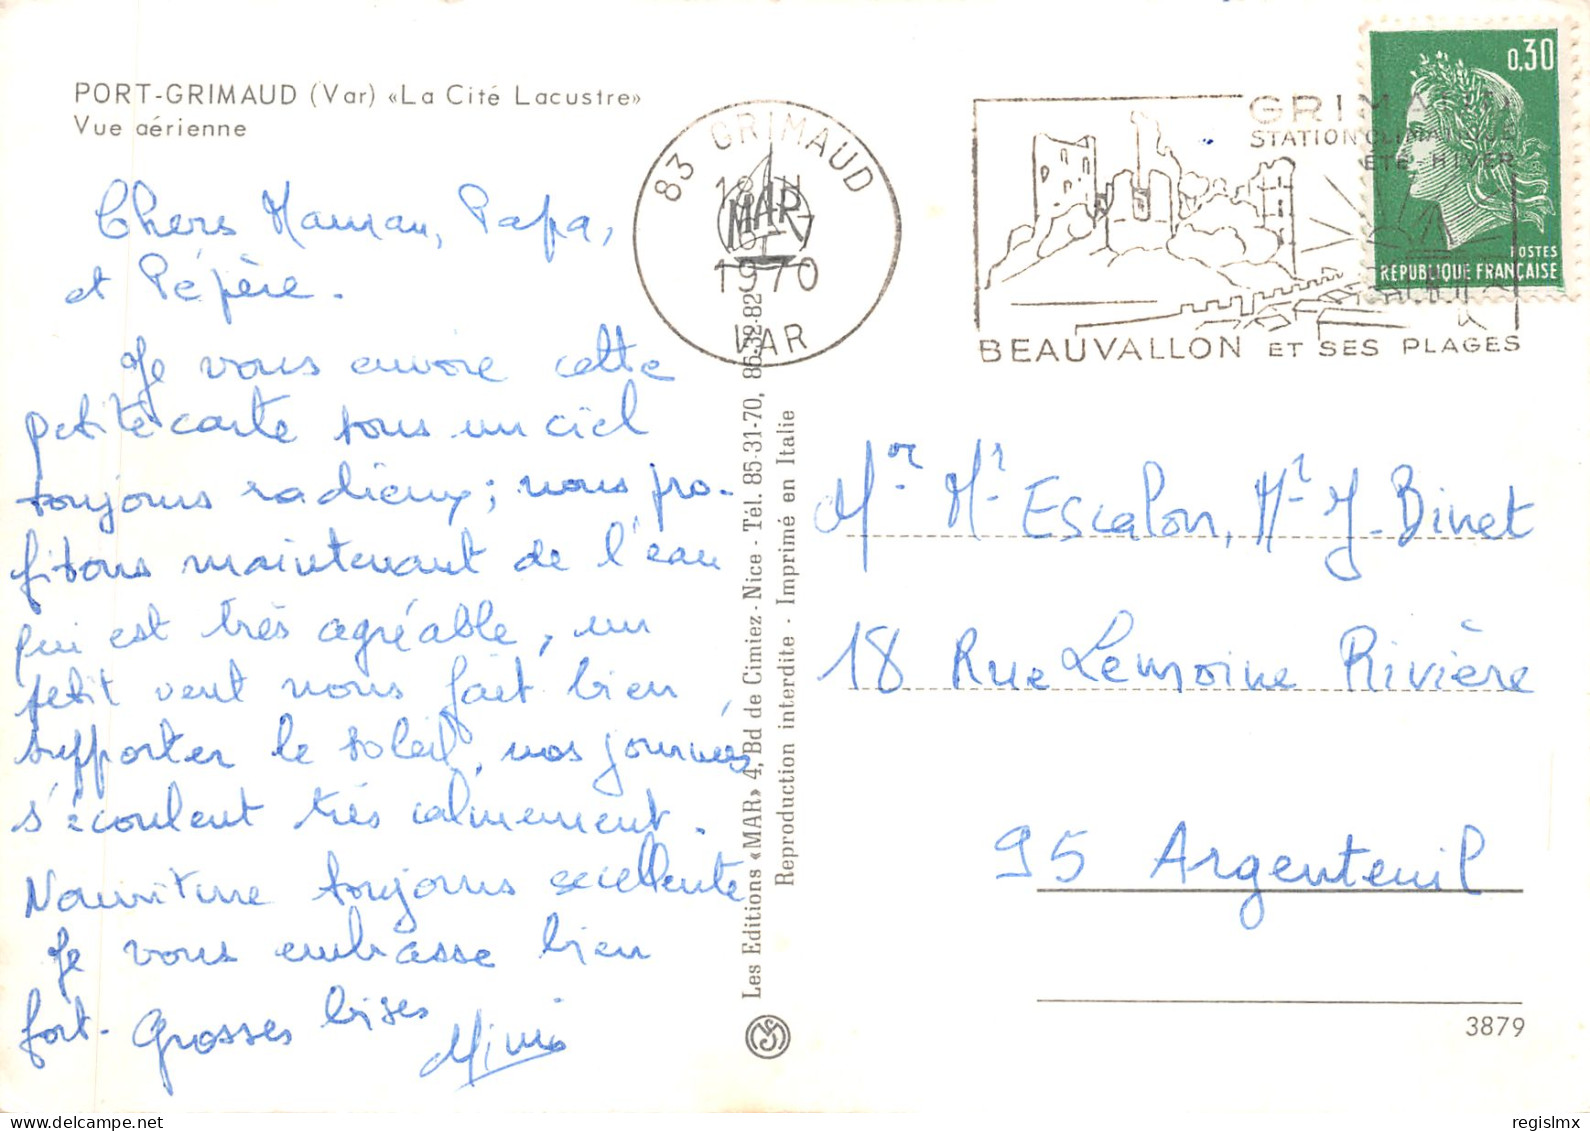 PORT-GRIMAUD (Var) «La Cité Lacustre»
Vue aérienne
Chers Maman, Papa,
et Pépère.
Je vous envoie cette
petite carte sous un ciel
toujours radieux; nous pro-
fitons maintenant de l'eau
qui est très agréable, un
petit vent nous fait bien
supporter le soleil, nos journées
s'écoulent très calmement.
Nourriture toujours excellente
Je vous embrasse bien
fort. Grosses bises
Mimi
83 GRIMAUD
18 H
16 - 7
1970
VAR
MAR
GRIMAUD
STATION CLIMATIQUE
ÉTÉ - HIVER
BEAUVALLON ET SES PLAGES
0,30
POSTES
RÉPUBLIQUE FRANÇAISE
Les Editions «MAR» 4, Bd de Cimiez - Nice - Tél. 85-31-70, 86-32-82
Reproduction interdite - Imprimé en Italie
Mr Escalon, Mr J. Binet
18 Rue Lemoine Rivière
95 Argenteuil
3879
regislmx